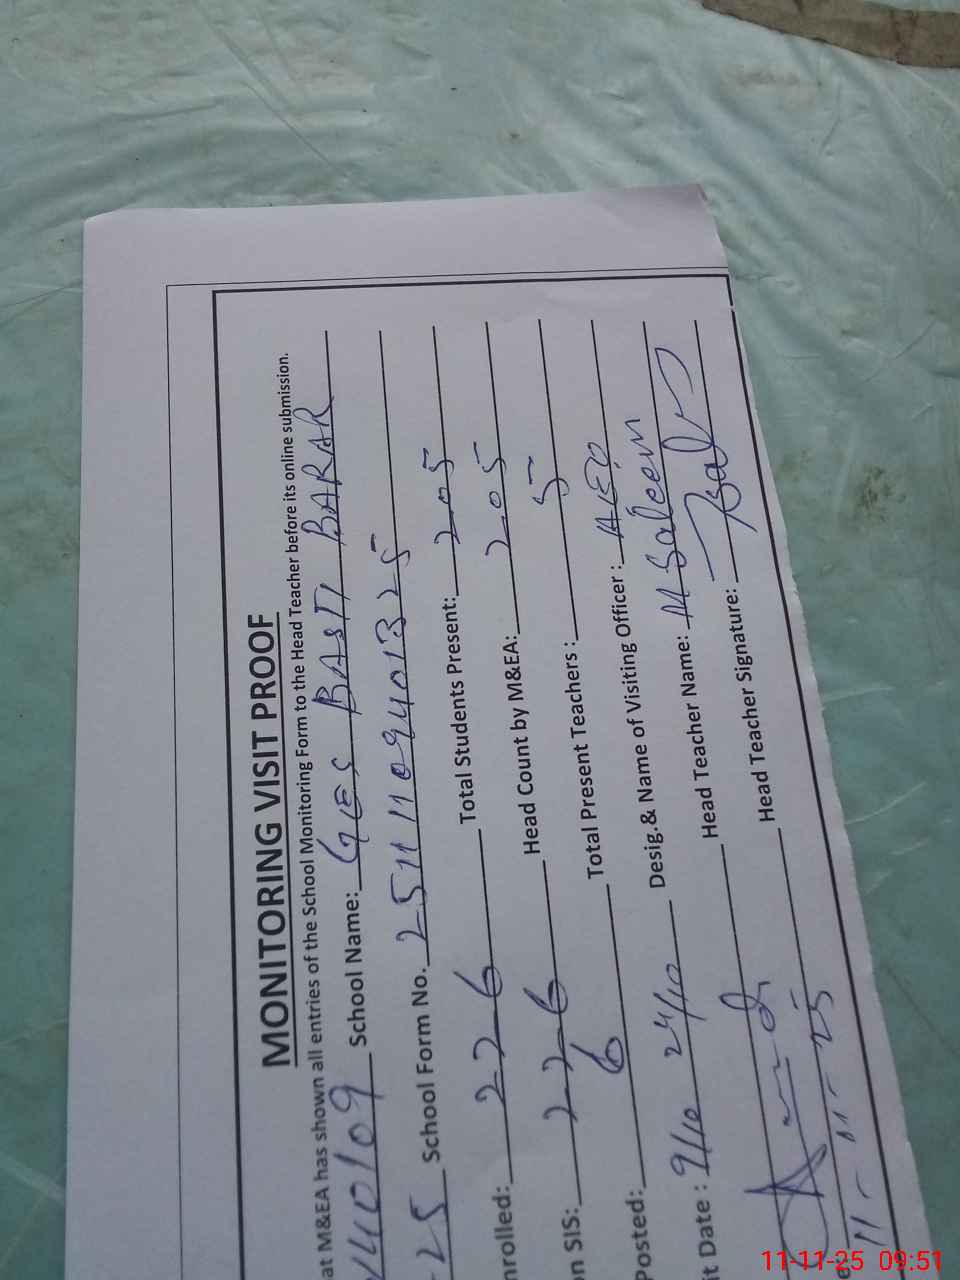 MONITORING VISIT PROOF
at M&EA has shown all entries of the School Monitoring Form to the Head Teacher before its online submission.
40109 School Name: GES BASTI BARAR
-25 School Form No. 25111109401325
nrolled: 226 Total Students Present: 205
on SIS: 226 Head Count by M&EA: 205
Posted: 6 Total Present Teachers : 5
it Date : 9/10 24/10 Desig.& Name of Visiting Officer : AEO
Head Teacher Name: M Saleem
Head Teacher Signature:
11-11-25
11-11-25 09:51